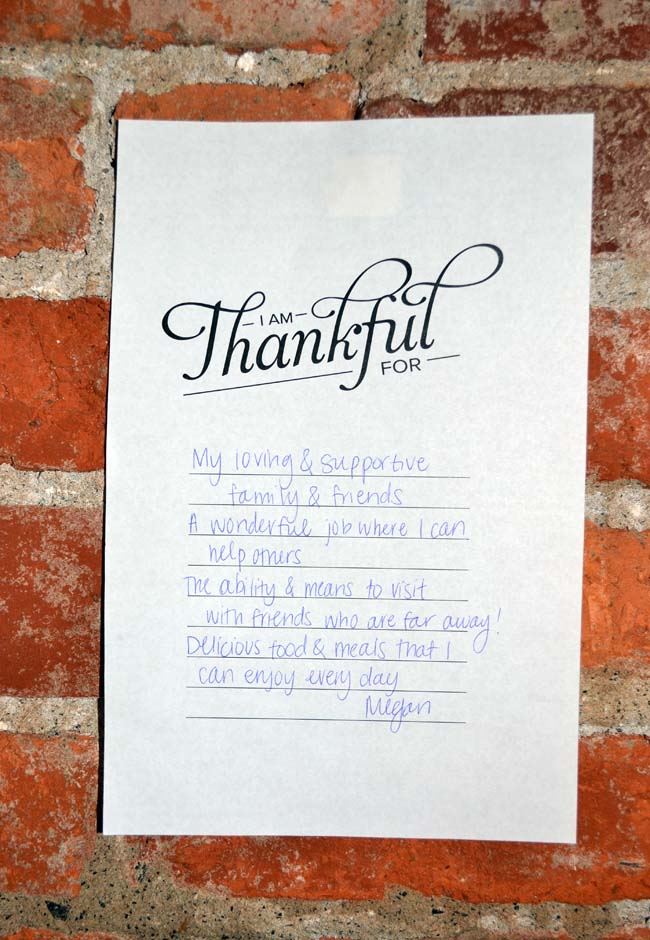 — I AM —
Thankful
FOR —
My loving & supportive
family & friends
A wonderful job where I can
help others
The ability & means to visit
with friends who are far away!
Delicious food & meals that I
can enjoy every day
Megan